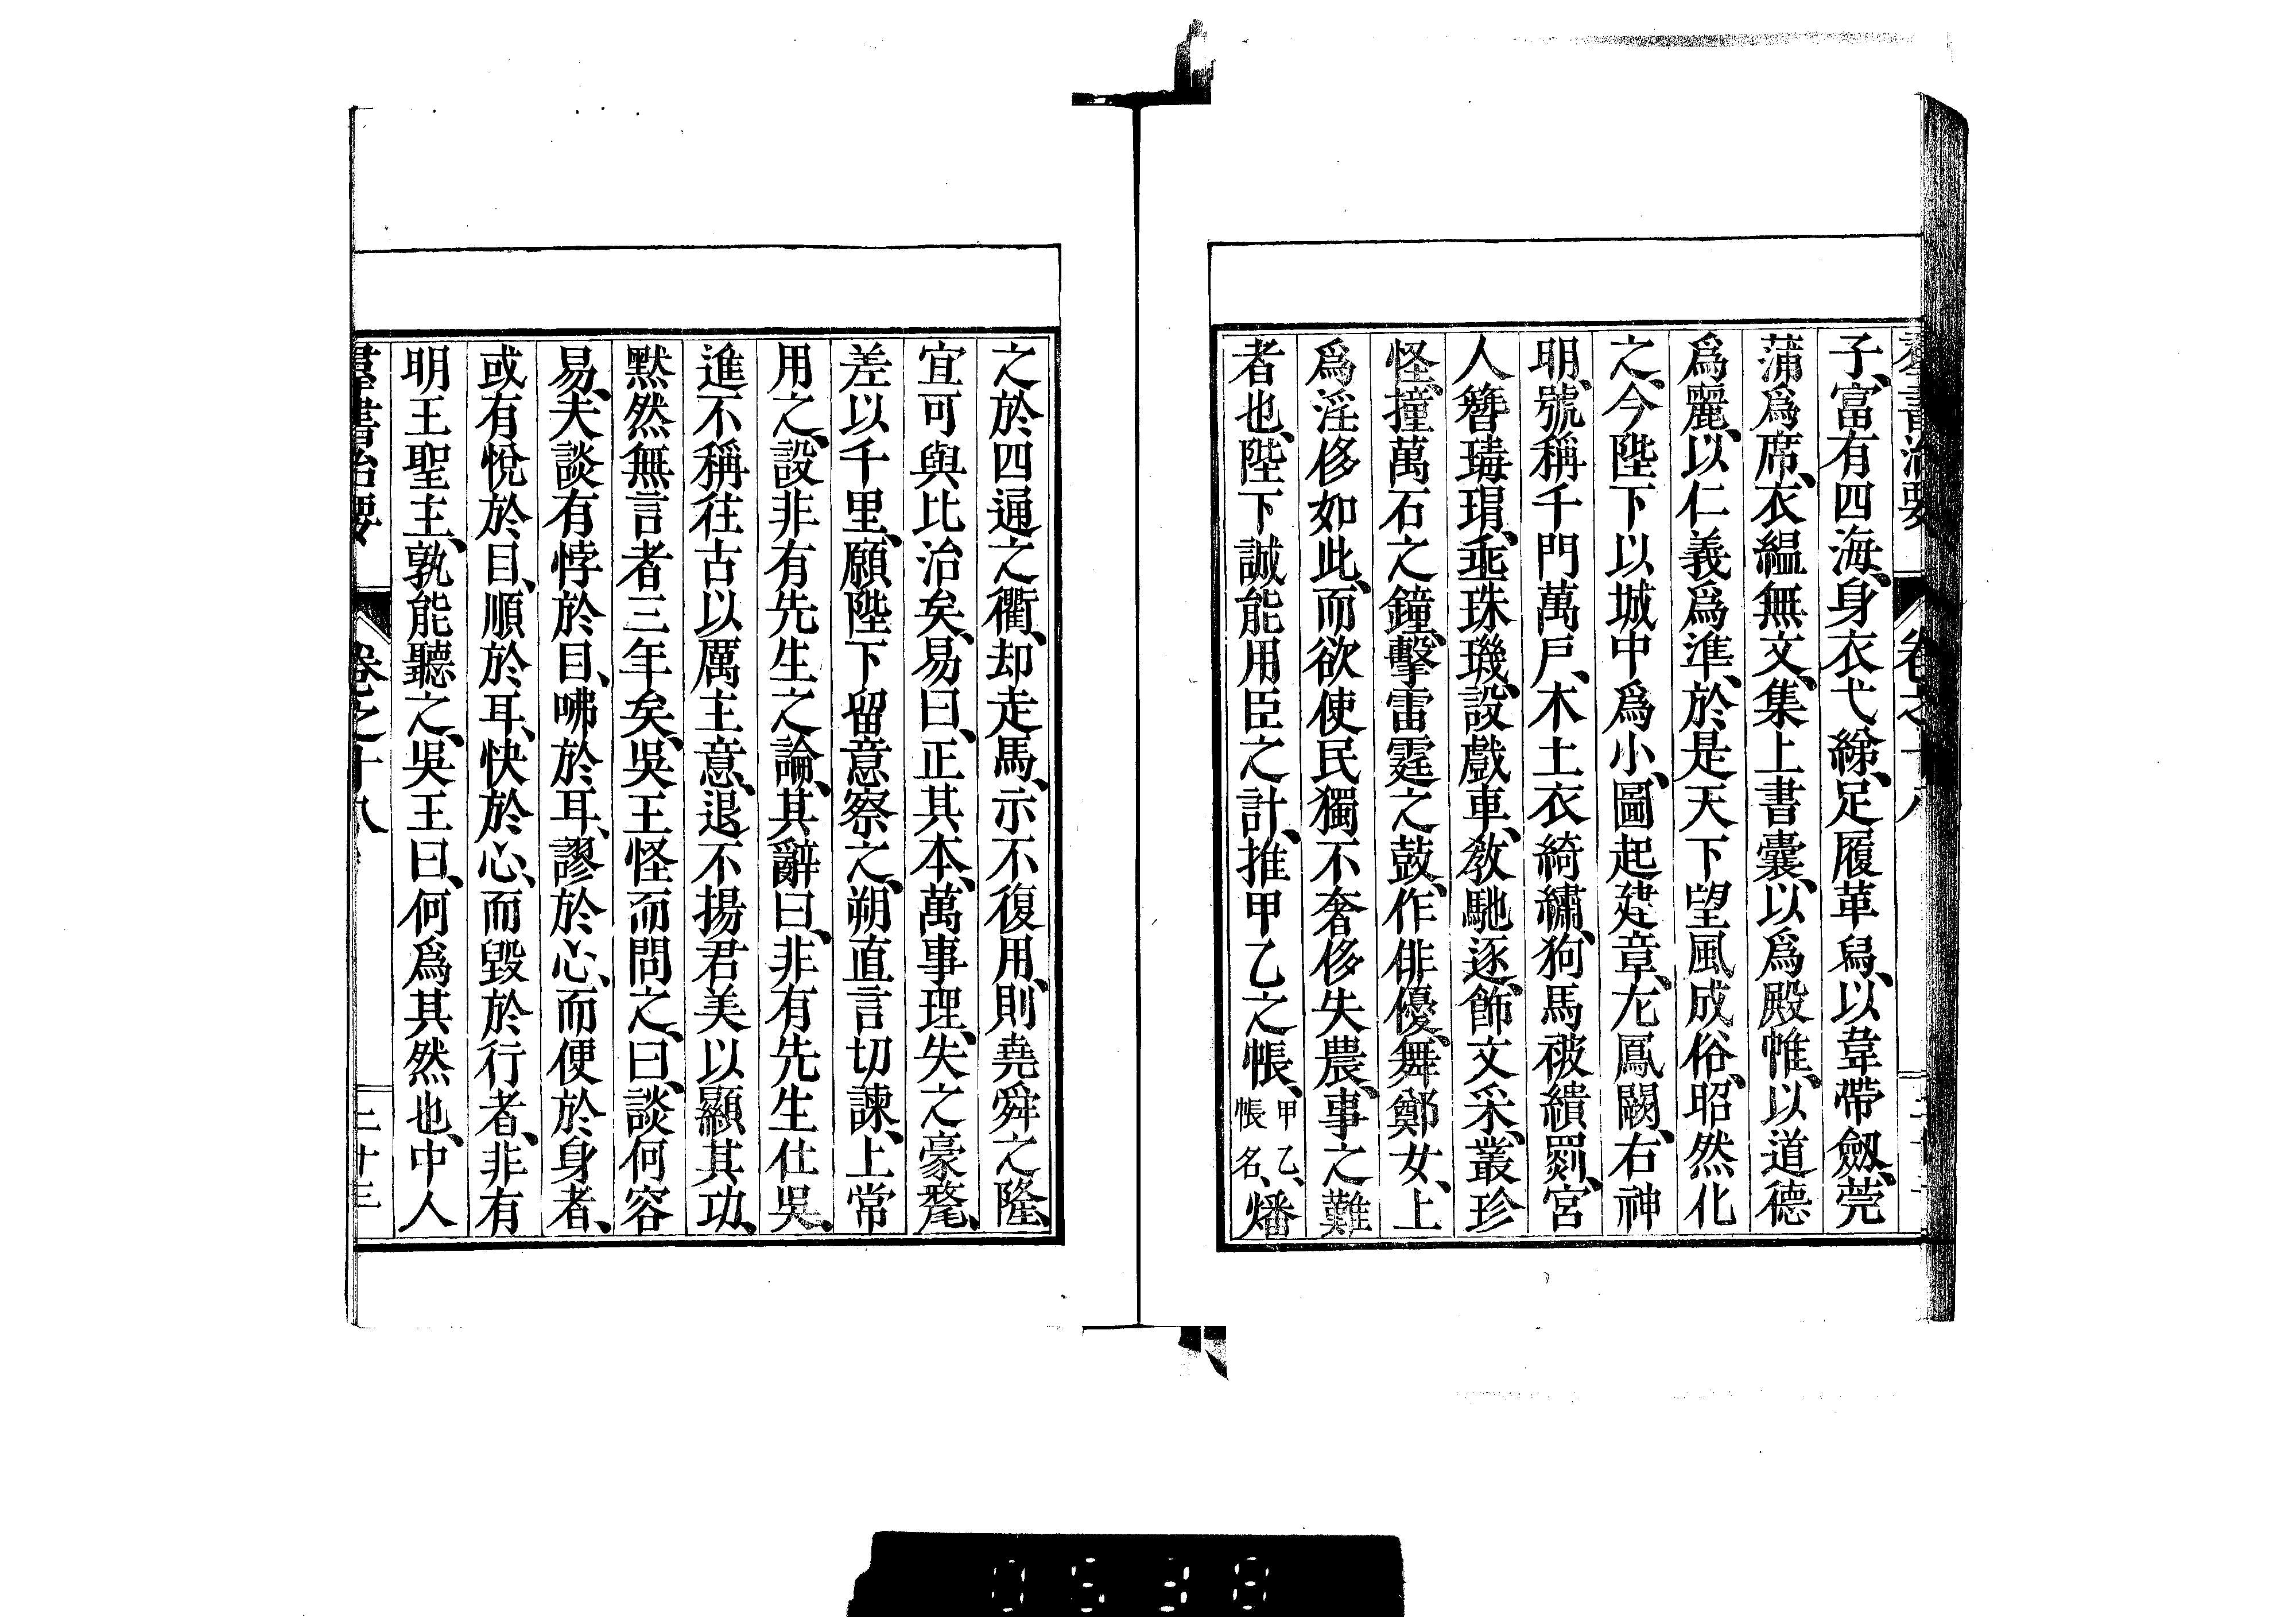 子、富有四海、身衣弋綈、足履革舄、以韋帶劔、莞
蒲爲席、衣縕無文、集上書囊、以爲殿帷、以道德
爲麗、以仁義爲準、於是天下望風成俗、昭然化
之、今陛下以城中爲小、圖起建章、左鳳闕、右神
明、號稱千門萬戶、木土衣綺繡、狗馬被繢罽、宮
人簪瑇瑁、垂珠璣、設戲車、敎馳逐、飾文采、叢珍
怪、撞萬石之鐘、擊雷霆之鼓、作俳優、舞鄭女、上
爲淫侈如此、而欲使民獨不奢侈失農、事之難
者也、陛下誠能用臣之計、推甲乙之帳、甲乙、帳名、燔
之於四通之衢、却走馬、示不復用、則堯舜之隆、
宜可與比治矣、易曰、正其本、萬事理、失之豪氂、
差以千里、願陛下留意察之、朔直言切諫、上常
用之、設非有先生之論、其辭曰、非有先生仕吳、
進不稱往古以厲主意、退不揚君美以顯其功、
默然無言者三年矣、吳王怪而問之、曰、談何容
易、夫談有悖於目、咈於耳、謬於心、而便於身者、
或有悅於目、順於耳、快於心、而毀於行者、非有
明王聖主、孰能聽之、吳王曰、何爲其然也、中人
羣書治要 卷之十八 三十三
0538